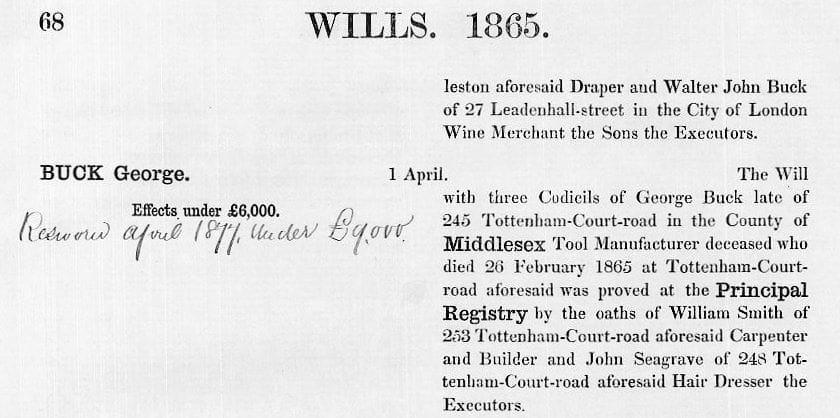 68
WILLS. 1865.
leston aforesaid Draper and Walter John Buck
of 27 Leadenhall-street in the City of London
Wine Merchant the Sons the Executors.
BUCK George.
Effects under £6,000.
Resworn april 1877. Under £9,000.
1 April. The Will
with three Codicils of George Buck late of
245 Tottenham-Court-road in the County of
Middlesex Tool Manufacturer deceased who
died 26 February 1865 at Tottenham-Court-
road aforesaid was proved at the Principal
Registry by the oaths of William Smith of
253 Tottenham-Court-road aforesaid Carpenter
and Builder and John Seagrave of 248 Tot-
tenham-Court-road aforesaid Hair Dresser the
Executors.